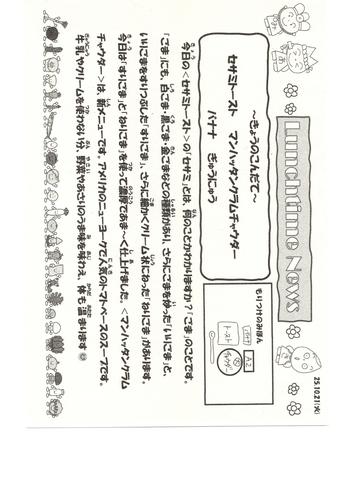 25.10.21(火)
Lunchtime News
~きょうのこんだて~
セサミトースト　マンハッタンクラムチャウダー
バナナ　ぎゅうにゅう
もりつけのみほん
バナナ
トースト
チャウダー
今日の＜セサミトースト＞の「セサミ」とは、何のことかわかりますか？「ごま」のことです。
「ごま」にも、白ごま・黒ごま・金ごまなどの種類があり、さらにごまを炒った「いりごま」と、
いりごまをすりつぶした「すりごま」、さらに細かくクリーム状になった「ねりごま」があります。
今日は「すりごま」と「ねりごま」を使って濃厚であま～く仕上げました。＜マンハッタンクラム
チャウダー＞は、新メニューです。アメリカのニューヨークで人気のトマトベースのスープです。
牛乳やクリームを使わない分、野菜やあさりのうま味を味わえ、体も温まります